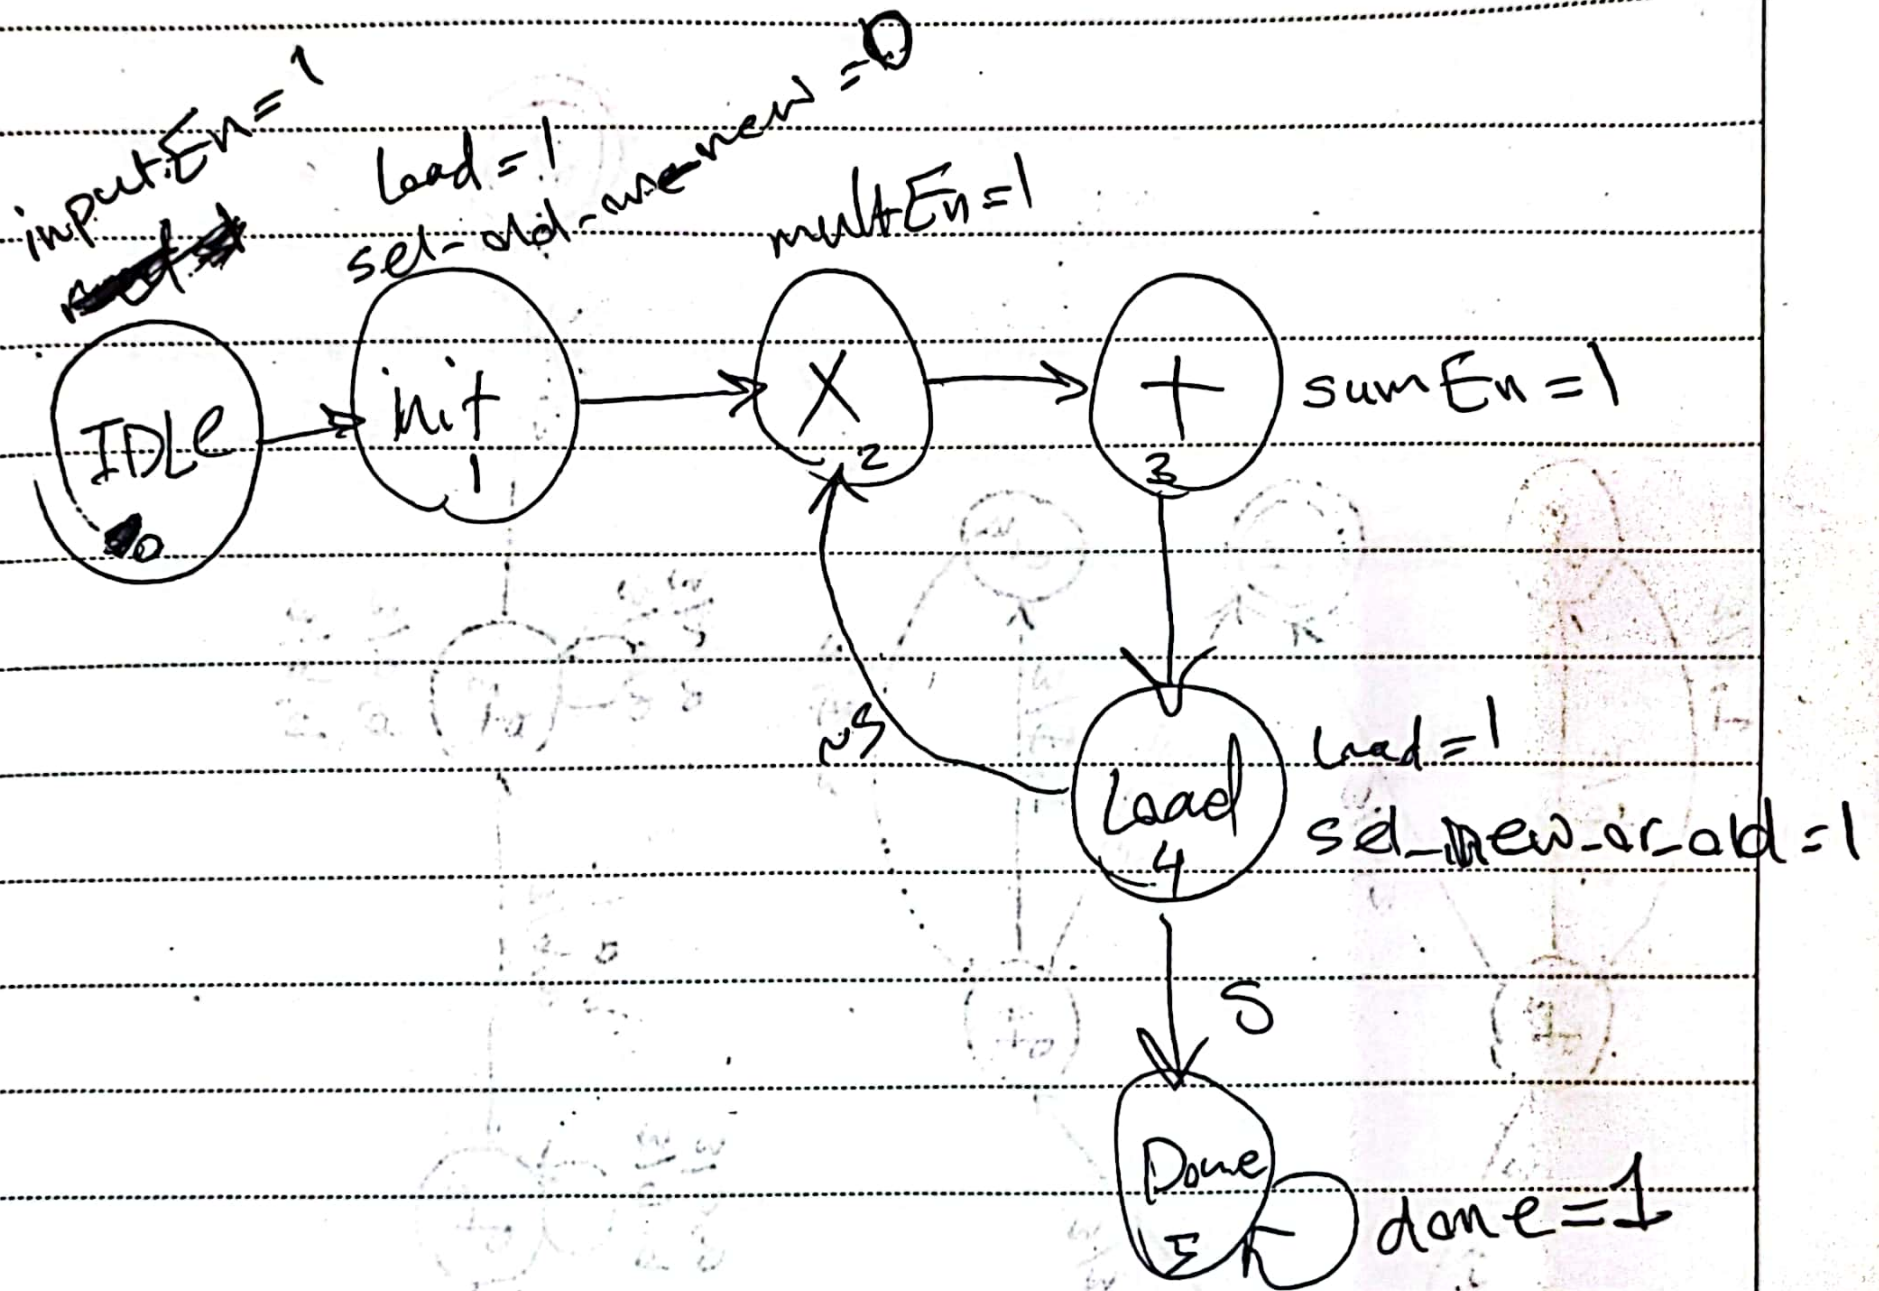 inputEn=1
Load=1
sel-old-
new=0
multEn=1
IDLe
0
init
1
X
2
+
3
sumEn=1
~S
Load
4
Load=1
sel_new_or_old=1
S
Done
5
done=1